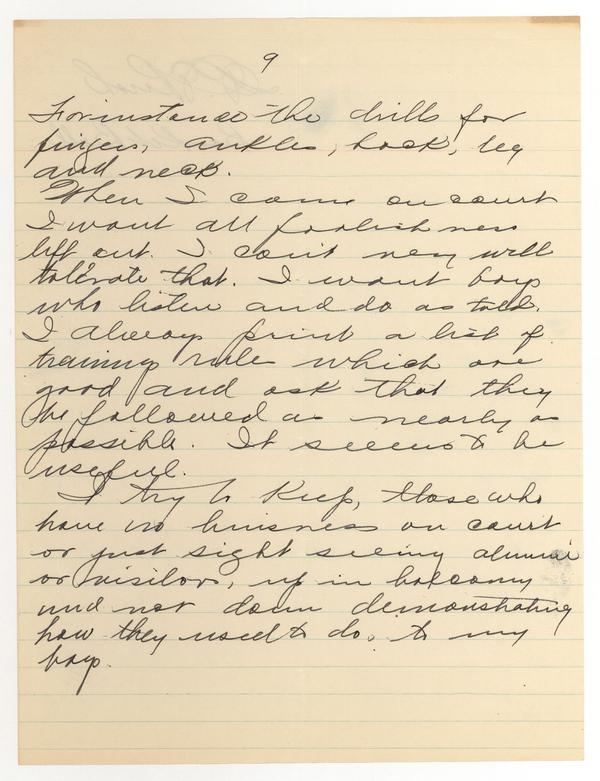 9
For instance the drills for
fingers, ankles, back, leg
and neck.
When I come on court
I want all foolishness
left out. I can't very well
tolerate that. I want boys
who listen and do as told.
I always print a list of
training rules which are
good and ask that they
be followed as nearly as
possible. It seems to be
useful.
I try to keep, those who
have no business on court
or just sight seeing alumni
or visitors, up in balcony
and not down demonstrating
how they used to do, to my
boys.